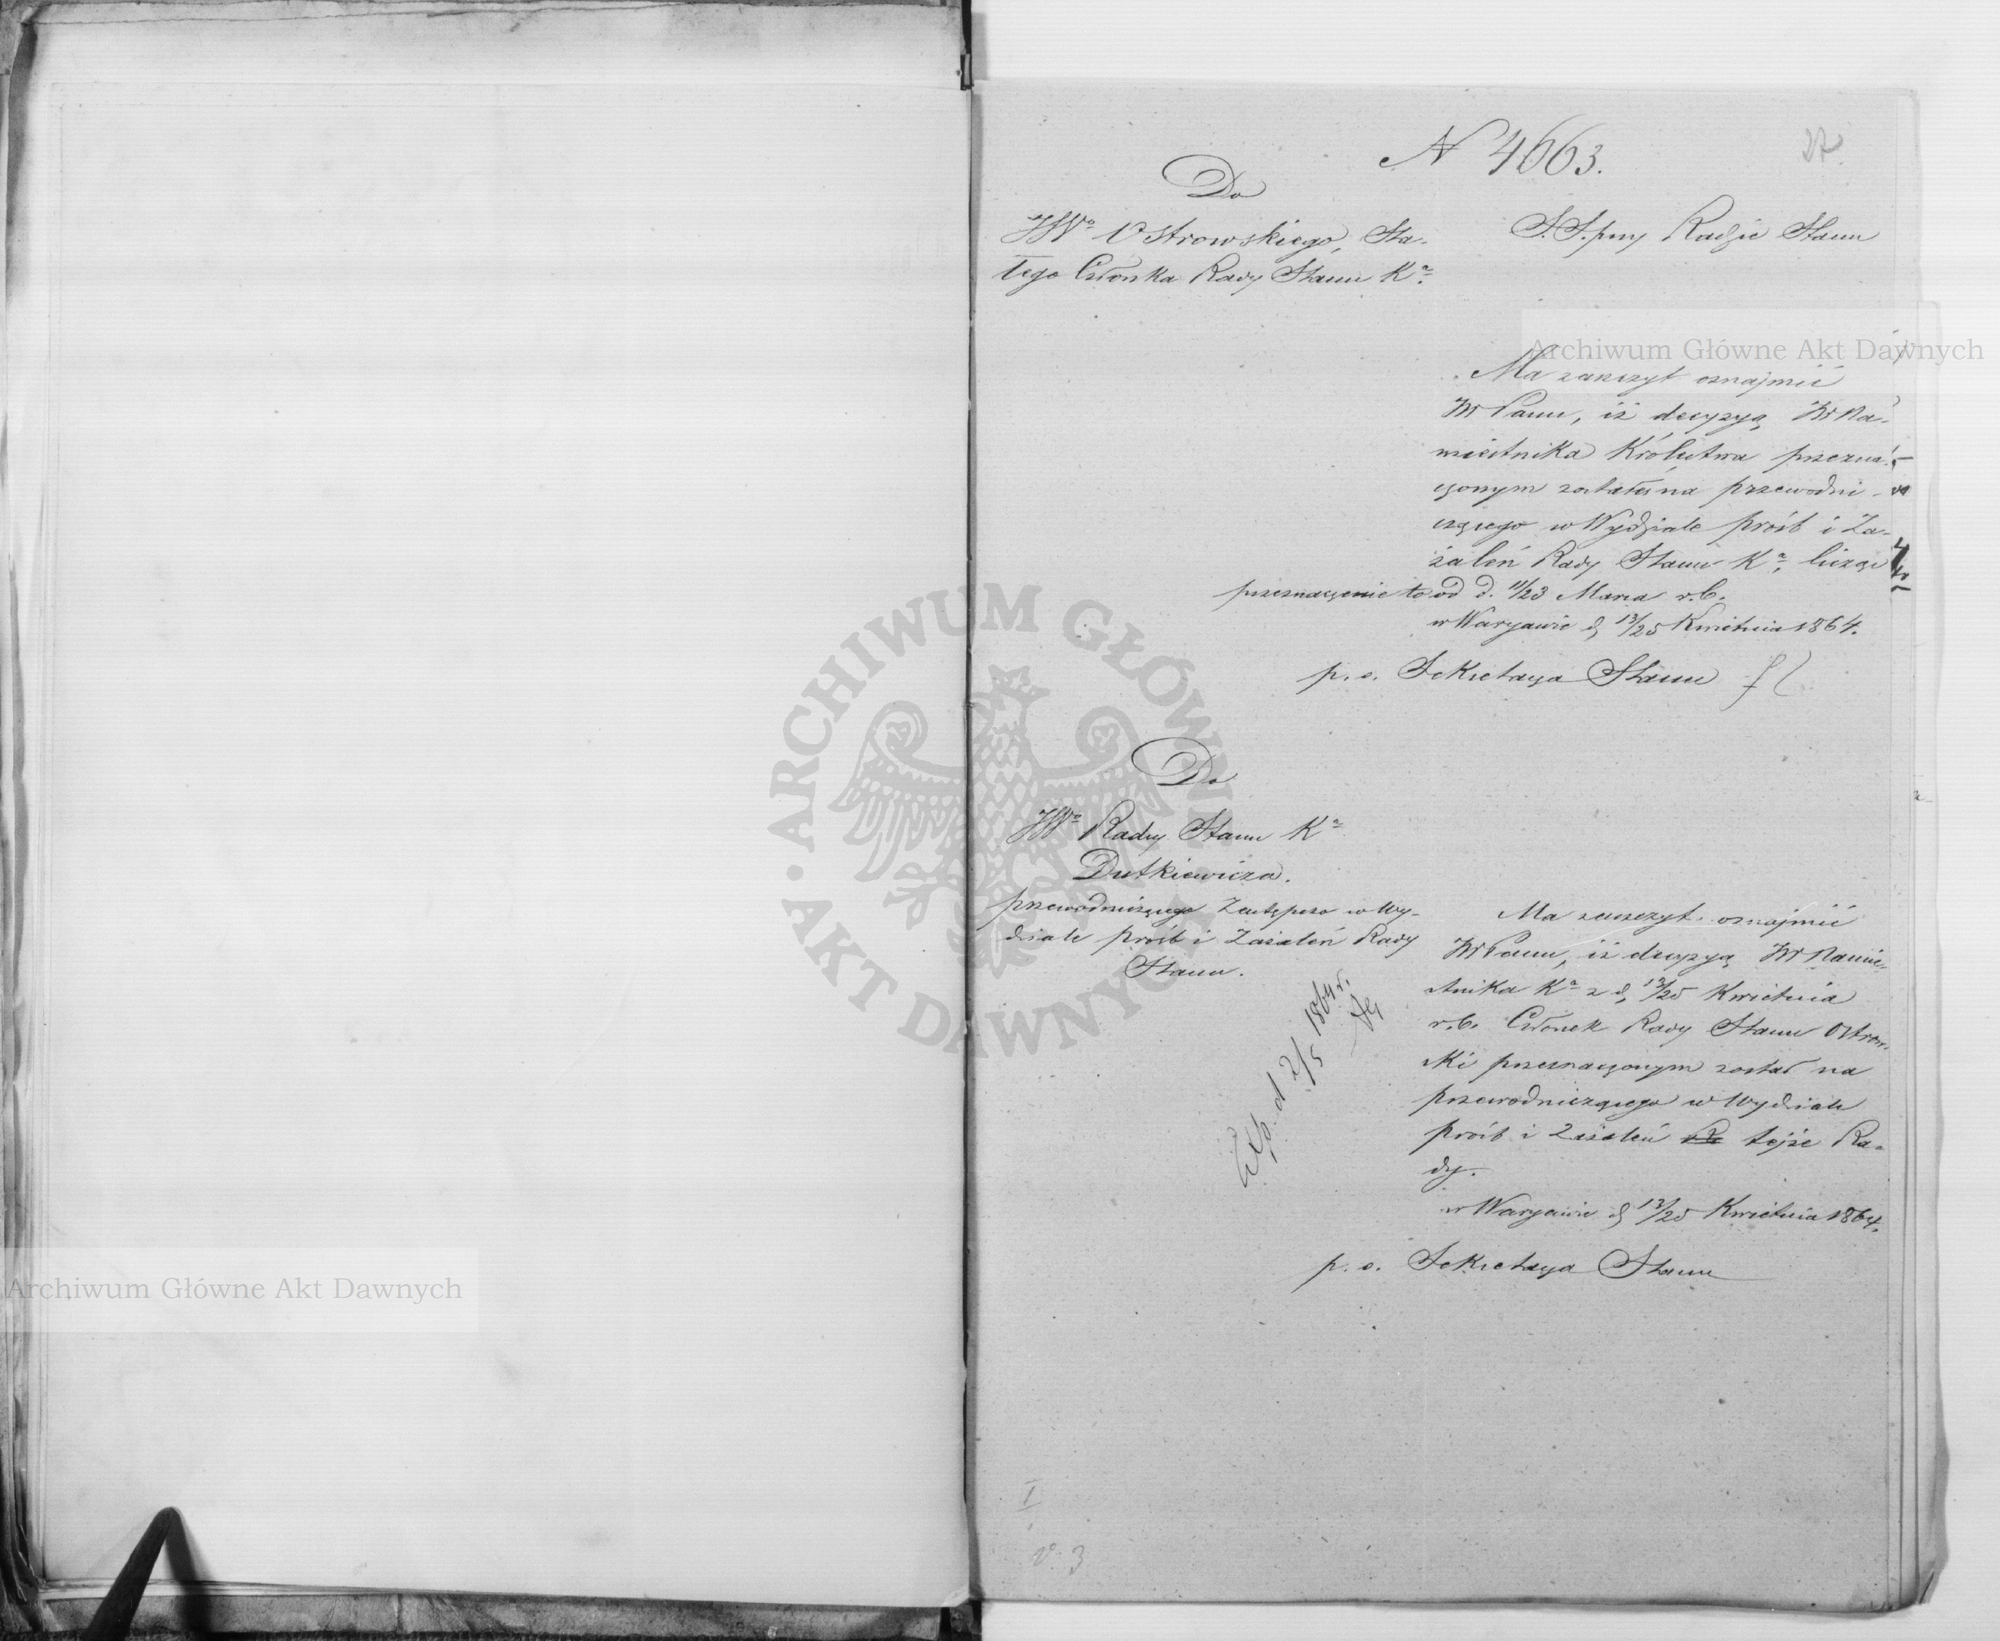 N 4663.
27.
Do
JWo Ostrowskiego, Sta-
łego Członka Rady Stanu Ka.
S. S. przy Radzie Stanu
Ma zaszczyt oznajmić
JW Panu, iż decyzyą JW Na-
miestnika Królestwa przezna-
czonym zostałeś na przewodni-
czącego w Wydziale próśb i Za-
żaleń Rady Stanu Ka, licząc
przeznaczenie to od d. 11/23 Marca r.b.
w Warszawie d 13/25 Kwietnia 1864.
p. o. Sekretarza Stanu
Do
JWo Radcy Stanu Ka
Dutkiewicza.
przewodniczącego Zastępczo w Wy-
dziale próśb i Zażaleń Rady
Stanu.
Ma zaszczyt oznajmić
JW Panu, iż decyzyą JW Namie-
stnika Ka z d. 13/25 Kwietnia
r.b. Członek Rady Stanu Ostrow-
ski przeznaczonym został na
przewodniczącego w Wydziale
próśb i Zażaleń tejże Ra-
dy.
w Warszawie d 13/25 Kwietnia 1864.
p. o. Sekretarza Stanu
Exp. d 2/5 1864 r.
I
v. 3
Archiwum Główne Akt Dawnych
Archiwum Główne Akt Dawnych
ARCHIWUM GŁÓWNE AKT DAWNYCH